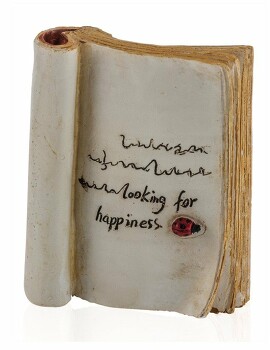 looking for
happiness